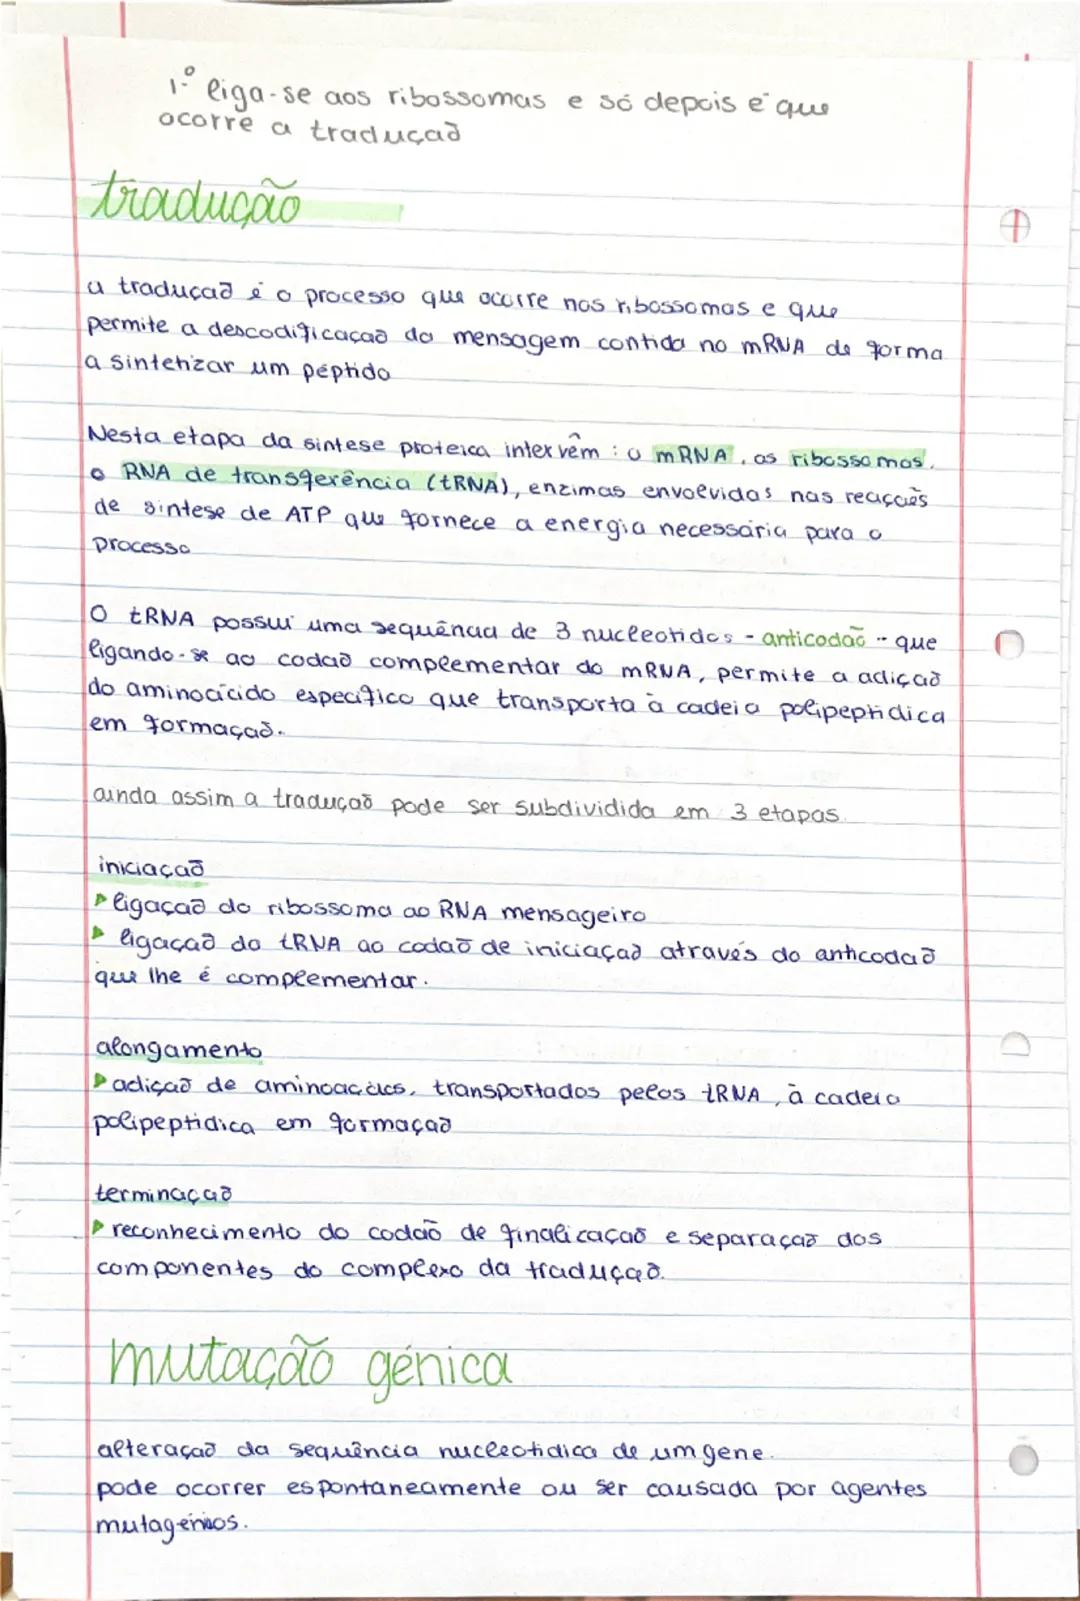 1.º liga-se aos ribossomas e só depois é que
ocorre a tradução
tradução
a tradução é o processo que ocorre nos ribossomas e que
permite a descodificação da mensagem contida no mRNA de forma
a sintetizar um péptido
Nesta etapa da síntese proteica intervêm : o mRNA, os ribossomas,
o RNA de transferência (tRNA), enzimas envolvidas nas reacções
de síntese de ATP que fornece a energia necessária para o
processo
O tRNA possui uma sequência de 3 nucleotidos - anticodão - que
ligando-se ao codão complementar do mRNA, permite a adição
do aminoácido específico que transporta à cadeia polipeptidica
em formação.
ainda assim a tradução pode ser subdividida em 3 etapas.
iniciação
ligação do ribossoma ao RNA mensageiro
ligação do tRNA ao codão de iniciação através do anticodão
que lhe é complementar.
alongamento
adição de aminoácidos, transportados pelos tRNA, à cadeia
polipeptidica em formação
terminação
reconhecimento do codão de finalização e separação dos
componentes do complexo da tradução.
mutação génica
alteração da sequência nucleotidica de um gene.
pode ocorrer espontaneamente ou ser causada por agentes
mutagénicos.